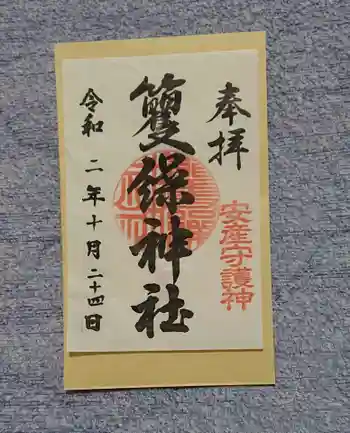 奉拝
安産守護神
神社
令和二年十月二十四日